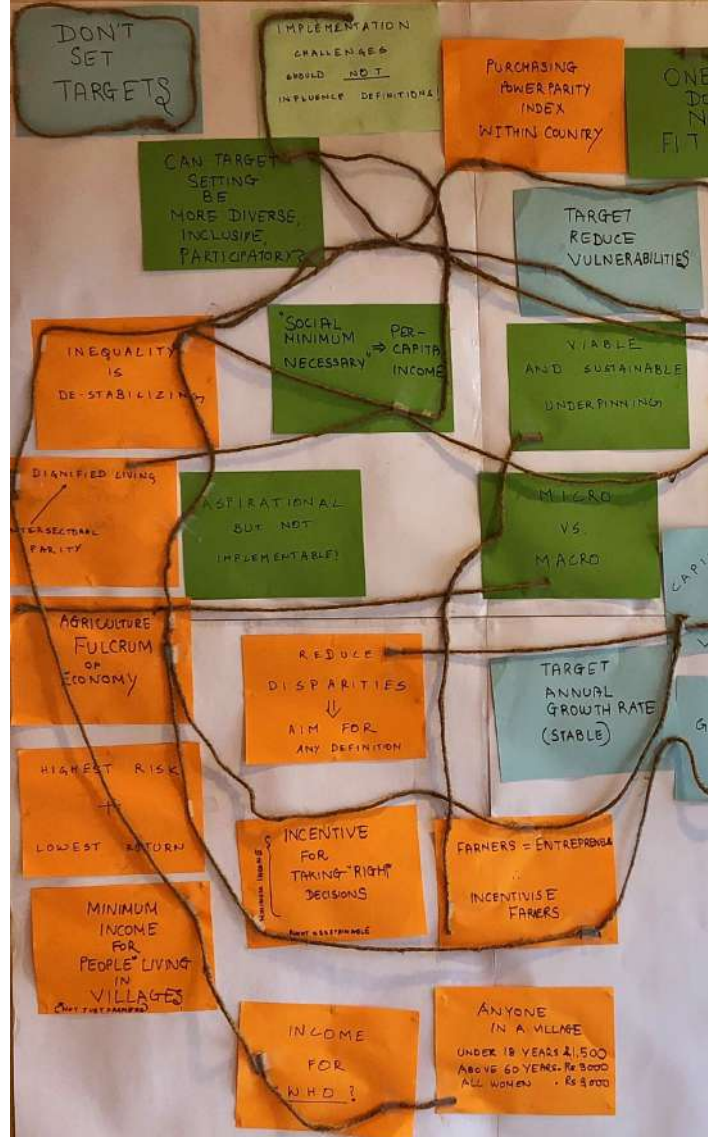 DON'T
SET
TARGETS
IMPLEMENTATION
CHALLENGES
SHOULD NOT
INFLUENCE DEFINITIONS!
PURCHASING
POWER PARITY
INDEX
WITHIN COUNTRY
ONE
DO
N
FIT
CAN TARGET
SETTING
BE
MORE DIVERSE,
INCLUSIVE,
PARTICIPATORY?
TARGET
REDUCE
VULNERABILITIES
INEQUALITY
IS
DE-STABILIZING
"SOCIAL
MINIMUM
NECESSARY" ⇒ PER-
CAPITA
INCOME
VIABLE
AND SUSTAINABLE
UNDERPINNING
DIGNIFIED LIVING
NTERSECTORAL
PARITY
ASPIRATIONAL
BUT NOT
IMPLEMENTABLE!
MICRO
VS.
MACRO
CAPI
V
AGRICULTURE
FULCRUM
OF
ECONOMY
REDUCE
DISPARITIES
⇓
AIM FOR
ANY DEFINITION
TARGET
ANNUAL
GROWTH RATE
(STABLE)
G
HIGHEST RISK
+
LOWEST RETURN
INCENTIVE
FOR
TAKING "RIGHT"
DECISIONS
MINIMUM INCOME
FARMERS = ENTREPRENEU
∴
INCENTIVISE
FARMERS
MINIMUM
INCOME
FOR
PEOPLE LIVING
IN
VILLAGES
(NOT JUST FARMERS)
INCOME
FOR
"WHO"?
ANYONE
IN A VILLAGE
UNDER 18 YEARS 1,500
ABOVE 60 YEARS. Rs 3000
ALL WOMEN . Rs 3000